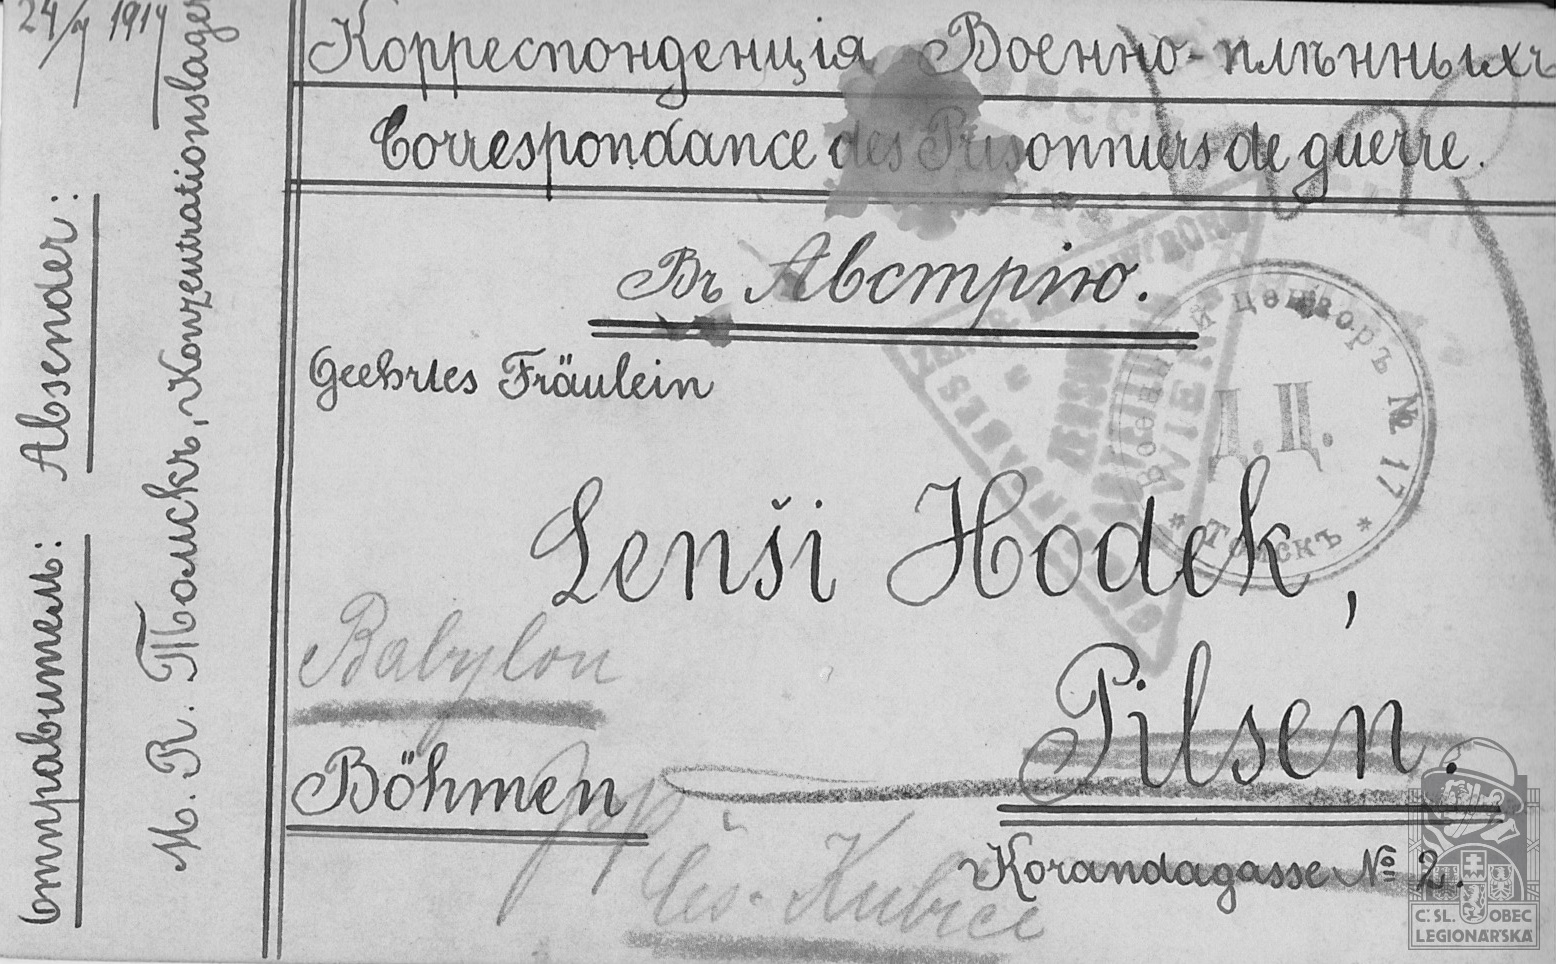 24/ 1914
Отправитель: Absender:
M. R. Томскъ, Konzentrationslager
Корреспонденція Военно-плѣнныхъ
Correspondance des Prisonniers de guerre.
Въ Австрію.
Geehrtes Fräulein
Lenši Hodek,
Babylon
Pilsen.
Böhmen
Korandagasse № 2.
Čes. Kubice
Военный цензоръ № 17
Д. Ц.
* Томскъ *
Č. SL. OBEC
LEGIONÁŘSKÁ